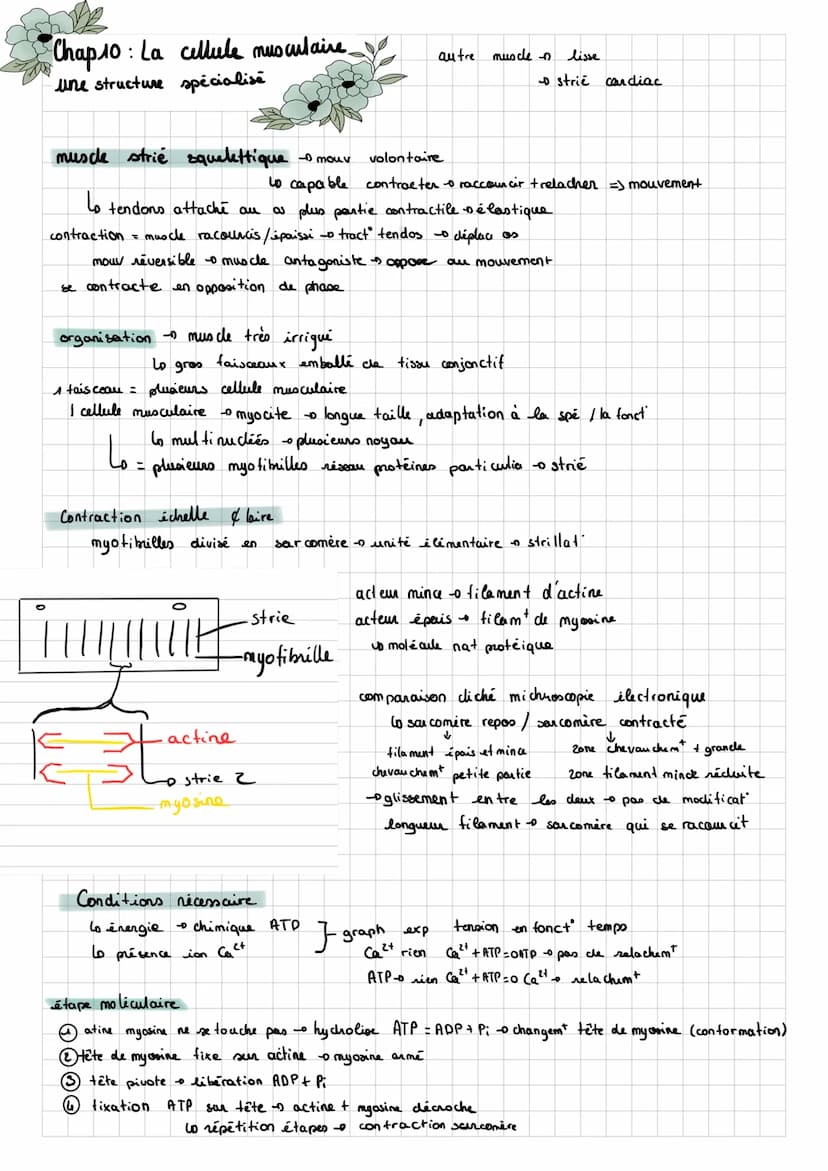 Chap10 : La cellule musculaire
une structure spécialisé
autre muscle → lisse
→ strié cardiac
muscle strié squelettique → mouv volontaire
↳ capable contracter → raccourcir + relacher => mouvement
↳ tendons attaché au os plus partie contractile → élastique
contraction = muscle racourcis/épaissi → tract° tendos → déplac os
mouv réversible → muscle antagoniste → oppose au mouvement
se contracte en opposition de phase
organisation → muscle très irrigué
↳ gros faisceaux emballé de tissu conjonctif
1 faisceau = plusieurs cellule musculaire
1 cellule musculaire → myocite → longue taille, adaptation à la spé / la fonct°
↳ multinucléés → plusieurs noyau
↳ = plusieurs myofibrilles réseau protéines particulié → strié
Contraction échelle ¢ laire
myofibrilles divisé en sarcomère → unité élémentaire → strillat°
strie
myofibrille
actine
strie z
myosine
acteur mince → filament d'actine
acteur épais → filam^t de myosine
↳ molécule nat protéique
comparaison cliché michroscopie électronique
↳ sarcomère repos / sarcomère contracté
↓ ↓
filament épais et mince zone chevauchem^t + grande
chevauchem^t petite partie zone filament mince réduite
→ glissement entre les deux → pas de modificat°
longueur filament → sarcomère qui se racourcit
Conditions nécessaire
↳ énergie → chimique ATP
↳ présence ion Ca²⁺
graph exp tension en fonct° temps
Ca²⁺ rien Ca²⁺ + ATP = 0ATP → pas de relachem^t
ATP → rien Ca²⁺ + ATP = 0 Ca²⁺ → relachem^t
étape moléculaire
① atine myosine ne se touche pas → hydrolise ATP = ADP + Pi → changem^t tête de myosine (conformation)
② tête de myosine fixe sur actine → myosine armé
③ tête pivote → libération ADP + Pi
④ fixation ATP sur tête → actine + myosine décroche
↳ répétition étapes → contraction sarcomère